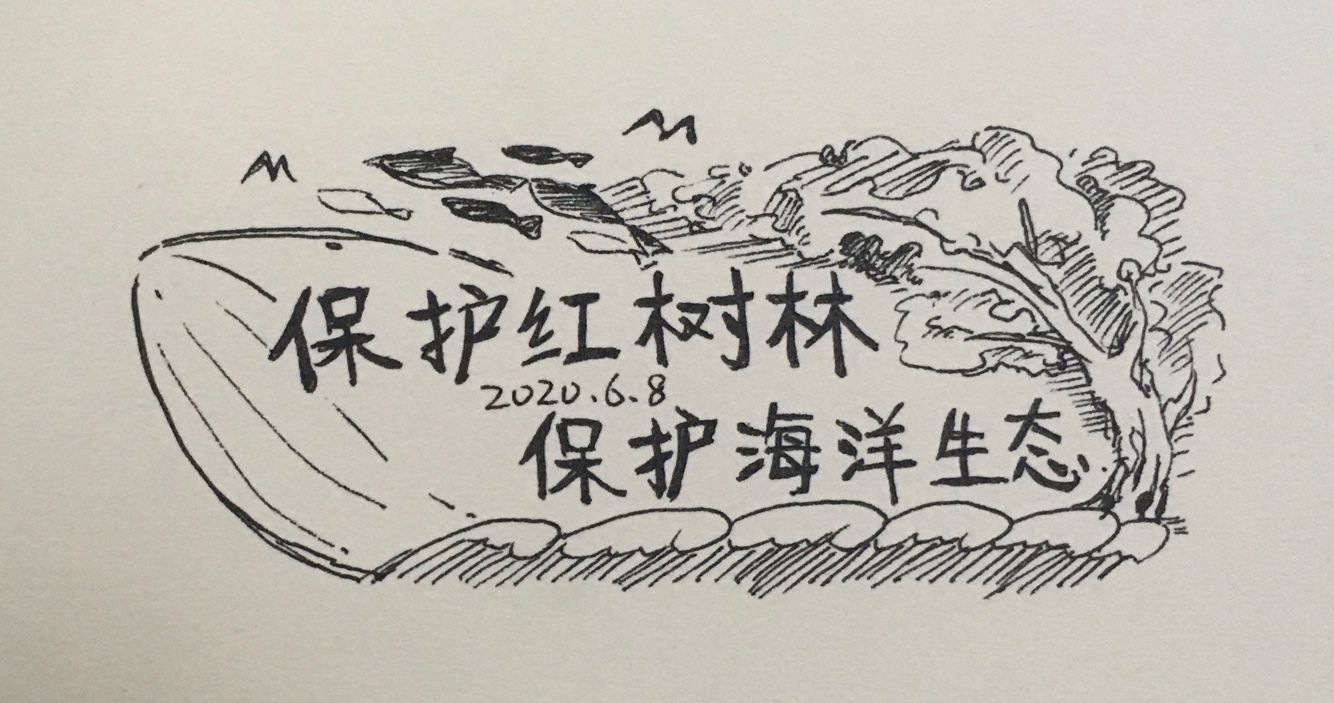 保护红树林
2020.6.8
保护海洋生态